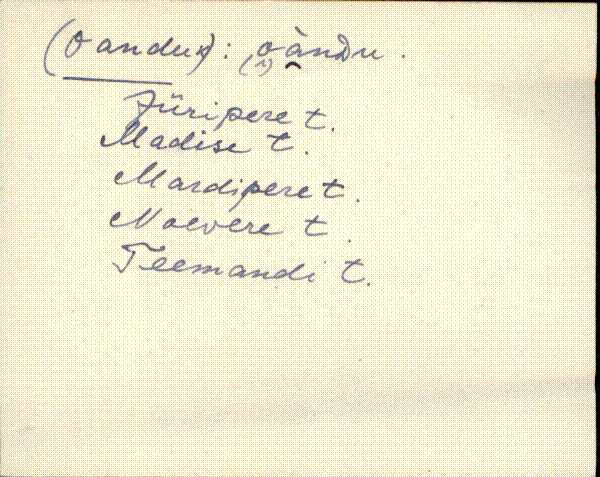 (Oandu): oàndu.
Jüripere t.
Madise t.
Mardipere t.
Noevere t.
Teemandi t.